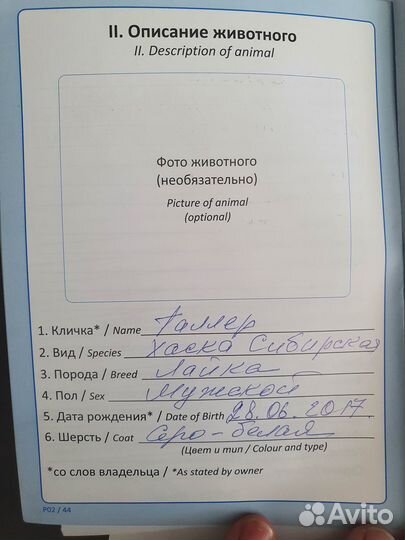 II. Описание животного
II. Description of animal
Фото животного
(необязательно)
Picture of animal
(optional)
1. Кличка* / Name Таллер
2. Вид / Species Хаска Сибирская
3. Порода / Breed Лайка
4. Пол / Sex Мужской
5. Дата рождения* / Date of Birth 28.06.2017.
6. Шерсть / Coat Серо-белая
(Цвет и тип / Colour and type)
*со слов владельца / *As stated by owner
P02 / 44
Avito